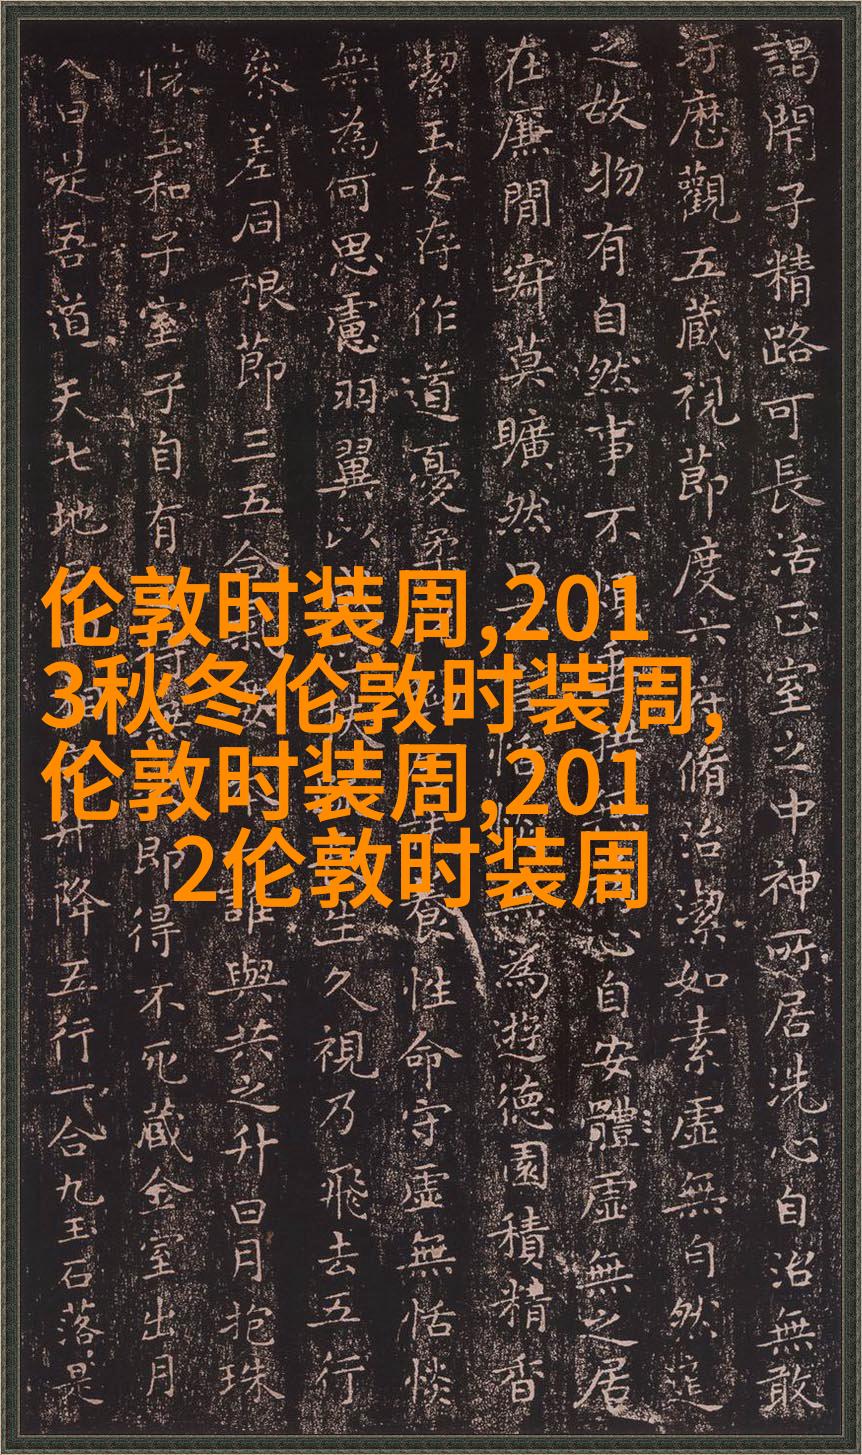 伦敦时装周,201
3秋冬伦敦时装周,
伦敦时装周,201
2伦敦时装周
謁閇子精路可長活正室之中神所居洗心自治無敢
汙歷觀五藏視節度六府脩治潔如素虛無自然道
之故物有自然事不煩垂心自安體虛無之居
在廉間寂莫曠然無為遊德園積精香
潔玉女存作道憂柔養性命守虛無恬惔
無為何思慮羽翼以生久視乃飛去五行
參差同根節三五合氣誰與共之升日月抱珠
懷玉和子室子自有即得不死藏金室出月
入日是吾道天七地升降五行一合九玉石落是